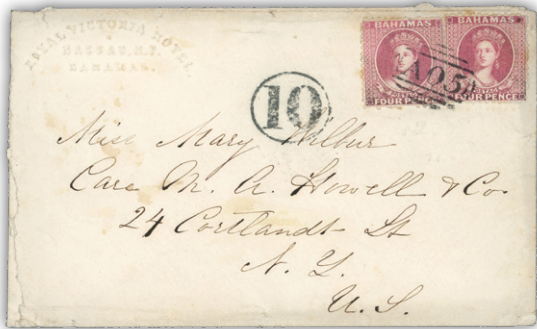 ROYAL VICTORIA HOTEL
NASSAU, N.P.
BAHAMAS.
BAHAMAS
BAHAMAS
FOUR PENCE
FOUR PENCE
A05
10
Miss Mary Wilbur
Care M. A. Howell & Co.
24 Cortlandt St
N. Y.
U. S.